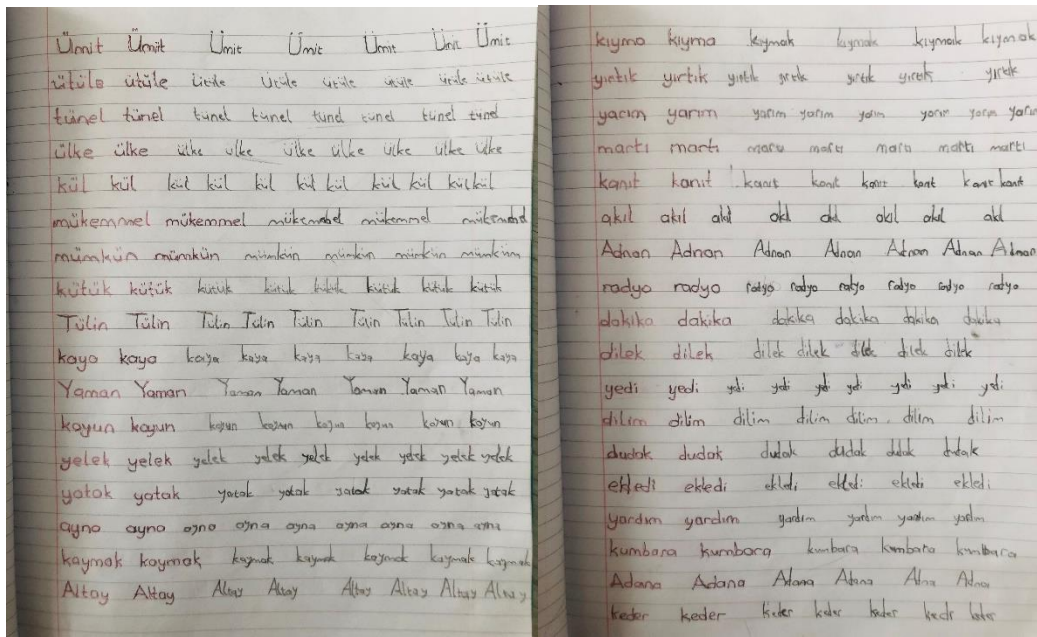 Ümit Ümit Ümit Ümit Ümit Ümit Ümit
ütüle ütüle ütüle ütüle ütüle ütüle ütüle ütüle
tünel tünel tünel tünel tünel tünel tünel tünel
ülke ülke ülke ülke ülke ülke ülke ülke ülke
kül kül kül kül kül kül kül kül kül kül kül
mükemmel mükemmel mükemmel
mümkün mümkün mümkün mümkün mümkün mümkün
kütük kütük kütük kütük kütük kütük kütük kütük
Tülin Tülin Tülin Tülin Tülin Tülin Tülin Tülin Tülin
kaya kaya kaya kaya kaya kaya kaya kaya kaya
Yaman Yaman Yaman Yaman Yaman Yaman Yaman
koyun koyun koyun koyun koyun koyun koyun koyun
yelek yelek yelek yelek yelek yelek yelek yelek yelek
yatak yatak yatak yatak yatak yatak yatak yatak
ayna ayna ayna ayna ayna ayna ayna ayna ayna
kaymak kaymak kaymak kaymak kaymak kaymak kaymak
Altay Altay Altay Altay Altay Altay Altay Altay
kıyma kıyma kıymak kıymak kıymak kıymak
yırtık yırtık yırtık yırtık yırtık yırtık yırtık
yarım yarım yarım yarım yarım yarım yarım yarım
martı martı martı martı martı martı
kanıt kanıt kanıt kanıt kanıt kant kanıt kanıt
akıl akıl akıl akıl akıl akıl akıl akıl
Adnan Adnan Adnan Adnan Adnan Adnan Adnan
radyo radyo radyo radyo radyo radyo radyo radyo
dakika dakika dakika dakika dakika dakika
dilek dilek dilek dilek dilek dilek dilek
yedi yedi yedi yedi yedi yedi yedi yedi yedi
dilim dilim dilim dilim dilim dilim dilim
dudak dudak dudak dudak dudak dudak
ekledi ekledi ekledi ekledi ekledi ekledi
yardım yardım yardım yardım yardım yardım
kumbara kumbara kumbara kumbara kumbara
Adana Adana Adana Adana
keder keder keder keder keder